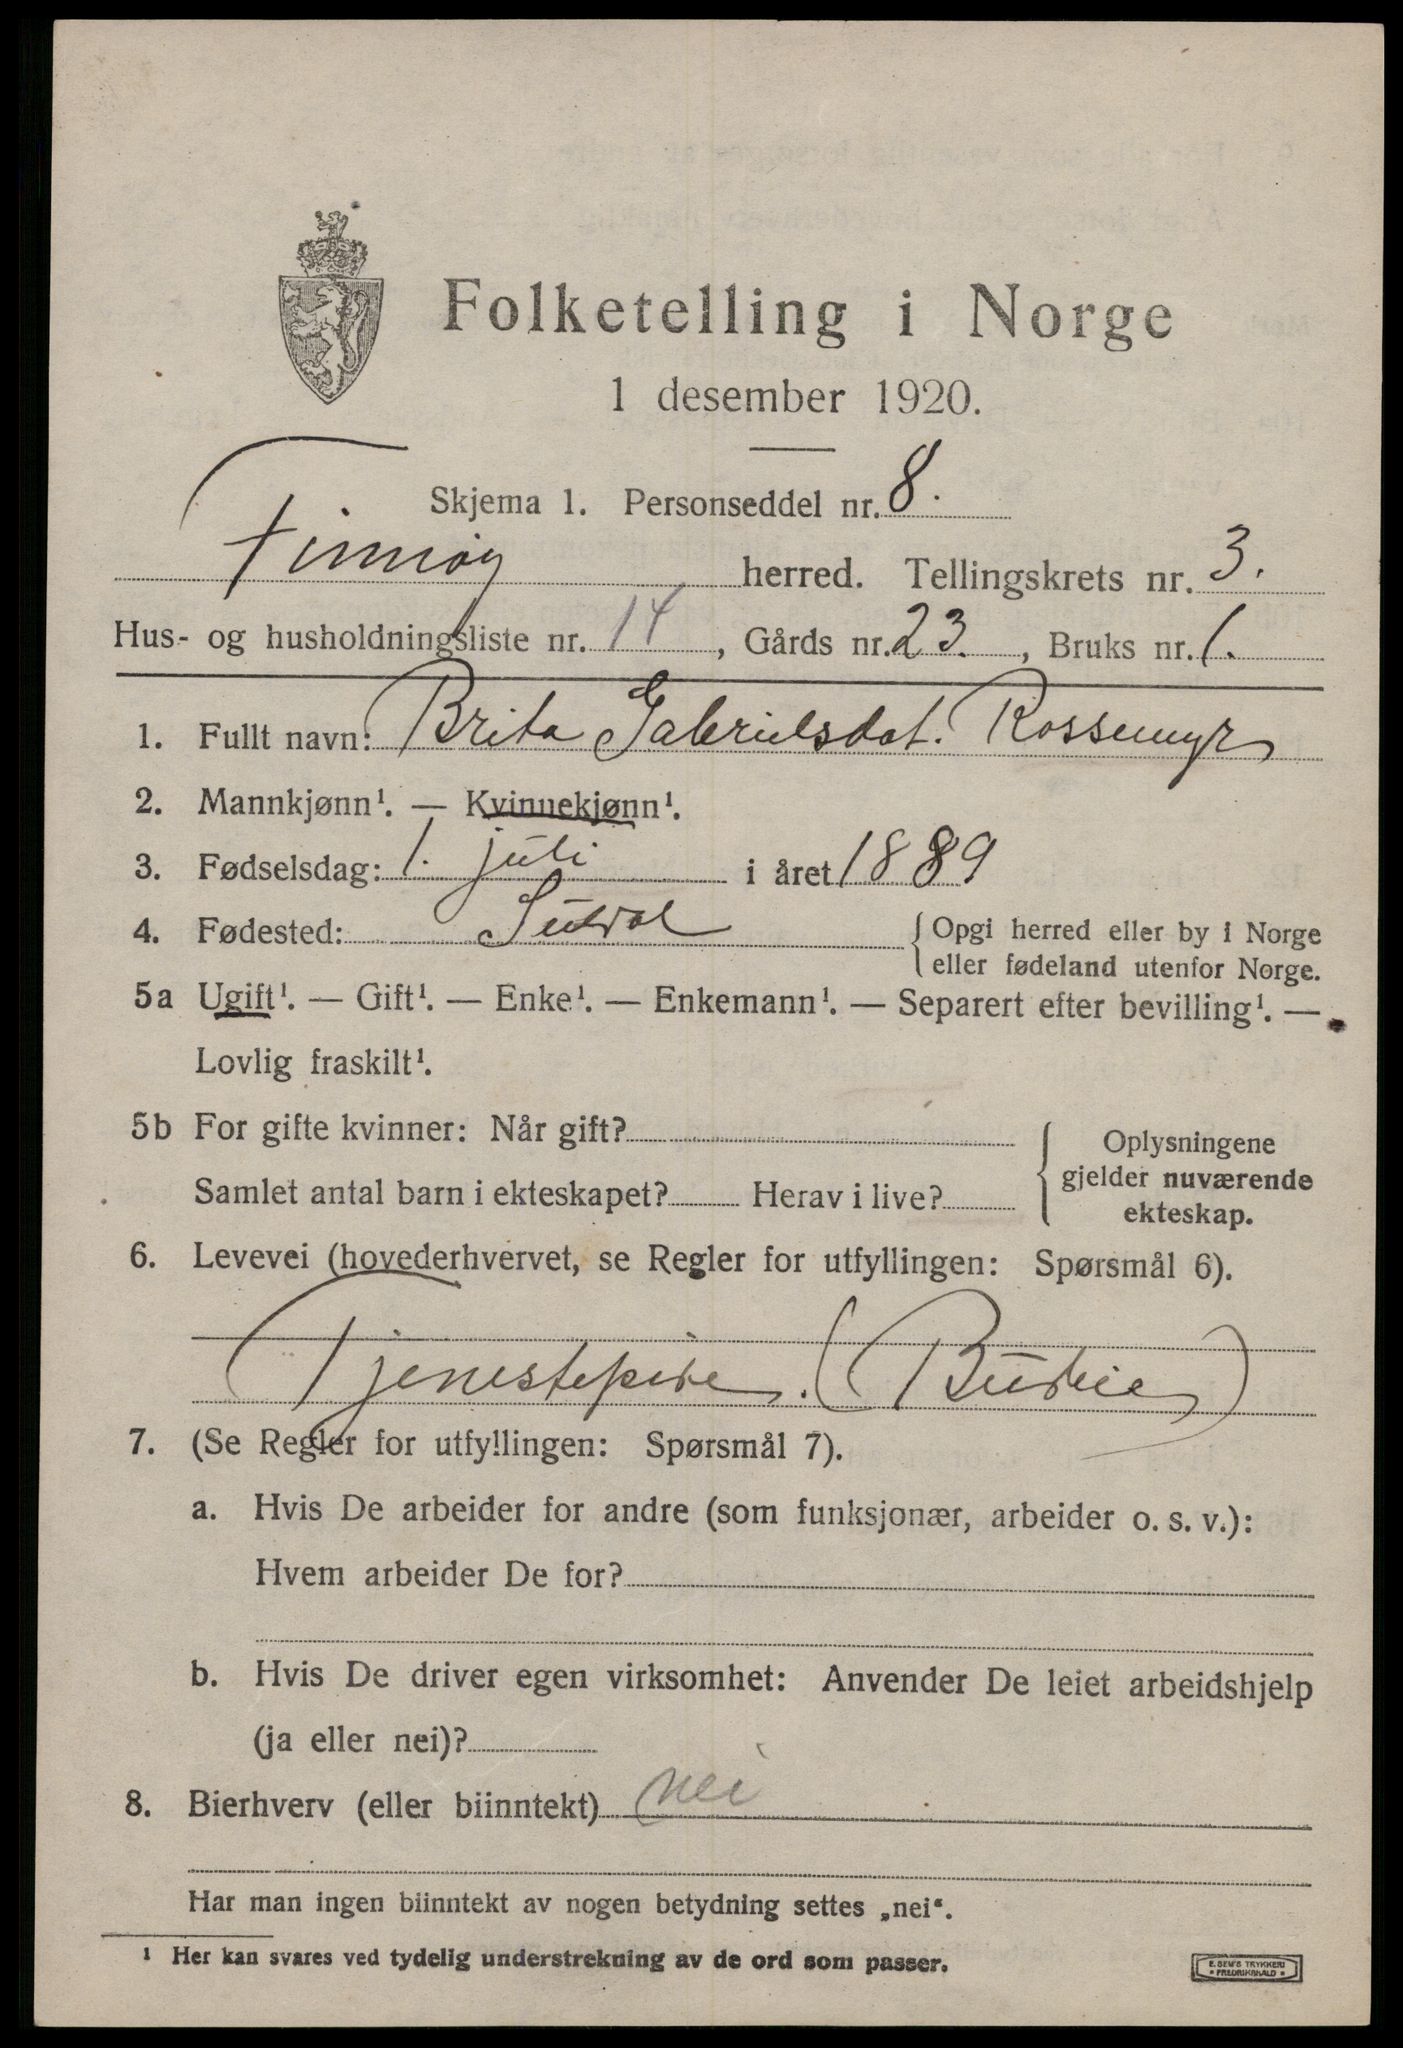 Folketelling i Norge
1 desember 1920.
Skjema 1. Personseddel nr. 8.
Finnøy herred. Tellingskrets nr. 3.
Hus- og husholdningsliste nr. 14, Gårds nr. 23., Bruks nr. 1.
1. Fullt navn: Brita Gabrielsdat. Rossemyr
2. Mannkjønn¹. — Kvinnekjønn¹.
3. Fødselsdag: 1. juli i året 1889
4. Fødested: Suldal { Opgi herred eller by i Norge
eller fødeland utenfor Norge.
5a Ugift¹. — Gift¹. — Enke¹. — Enkemann¹. — Separert efter bevilling¹. —
Lovlig fraskilt¹.
5b For gifte kvinner: Når gift?
Samlet antal barn i ekteskapet? Herav i live?
Oplysningene
gjelder nuværende
ekteskap.
6. Levevei (hovederhvervet, se Regler for utfyllingen: Spørsmål 6).
Tjenestepike. (Budeie)
7. (Se Regler for utfyllingen: Spørsmål 7).
a. Hvis De arbeider for andre (som funksjonær, arbeider o. s. v.):
Hvem arbeider De for?
b. Hvis De driver egen virksomhet: Anvender De leiet arbeidshjelp
(ja eller nei)?
8. Bierhverv (eller biinntekt) nei
Har man ingen biinntekt av nogen betydning settes „nei“.
¹ Her kan svares ved tydelig understrekning av de ord som passer.
E. SEM'S TRYKKERI
• FREDRIKSHALD •